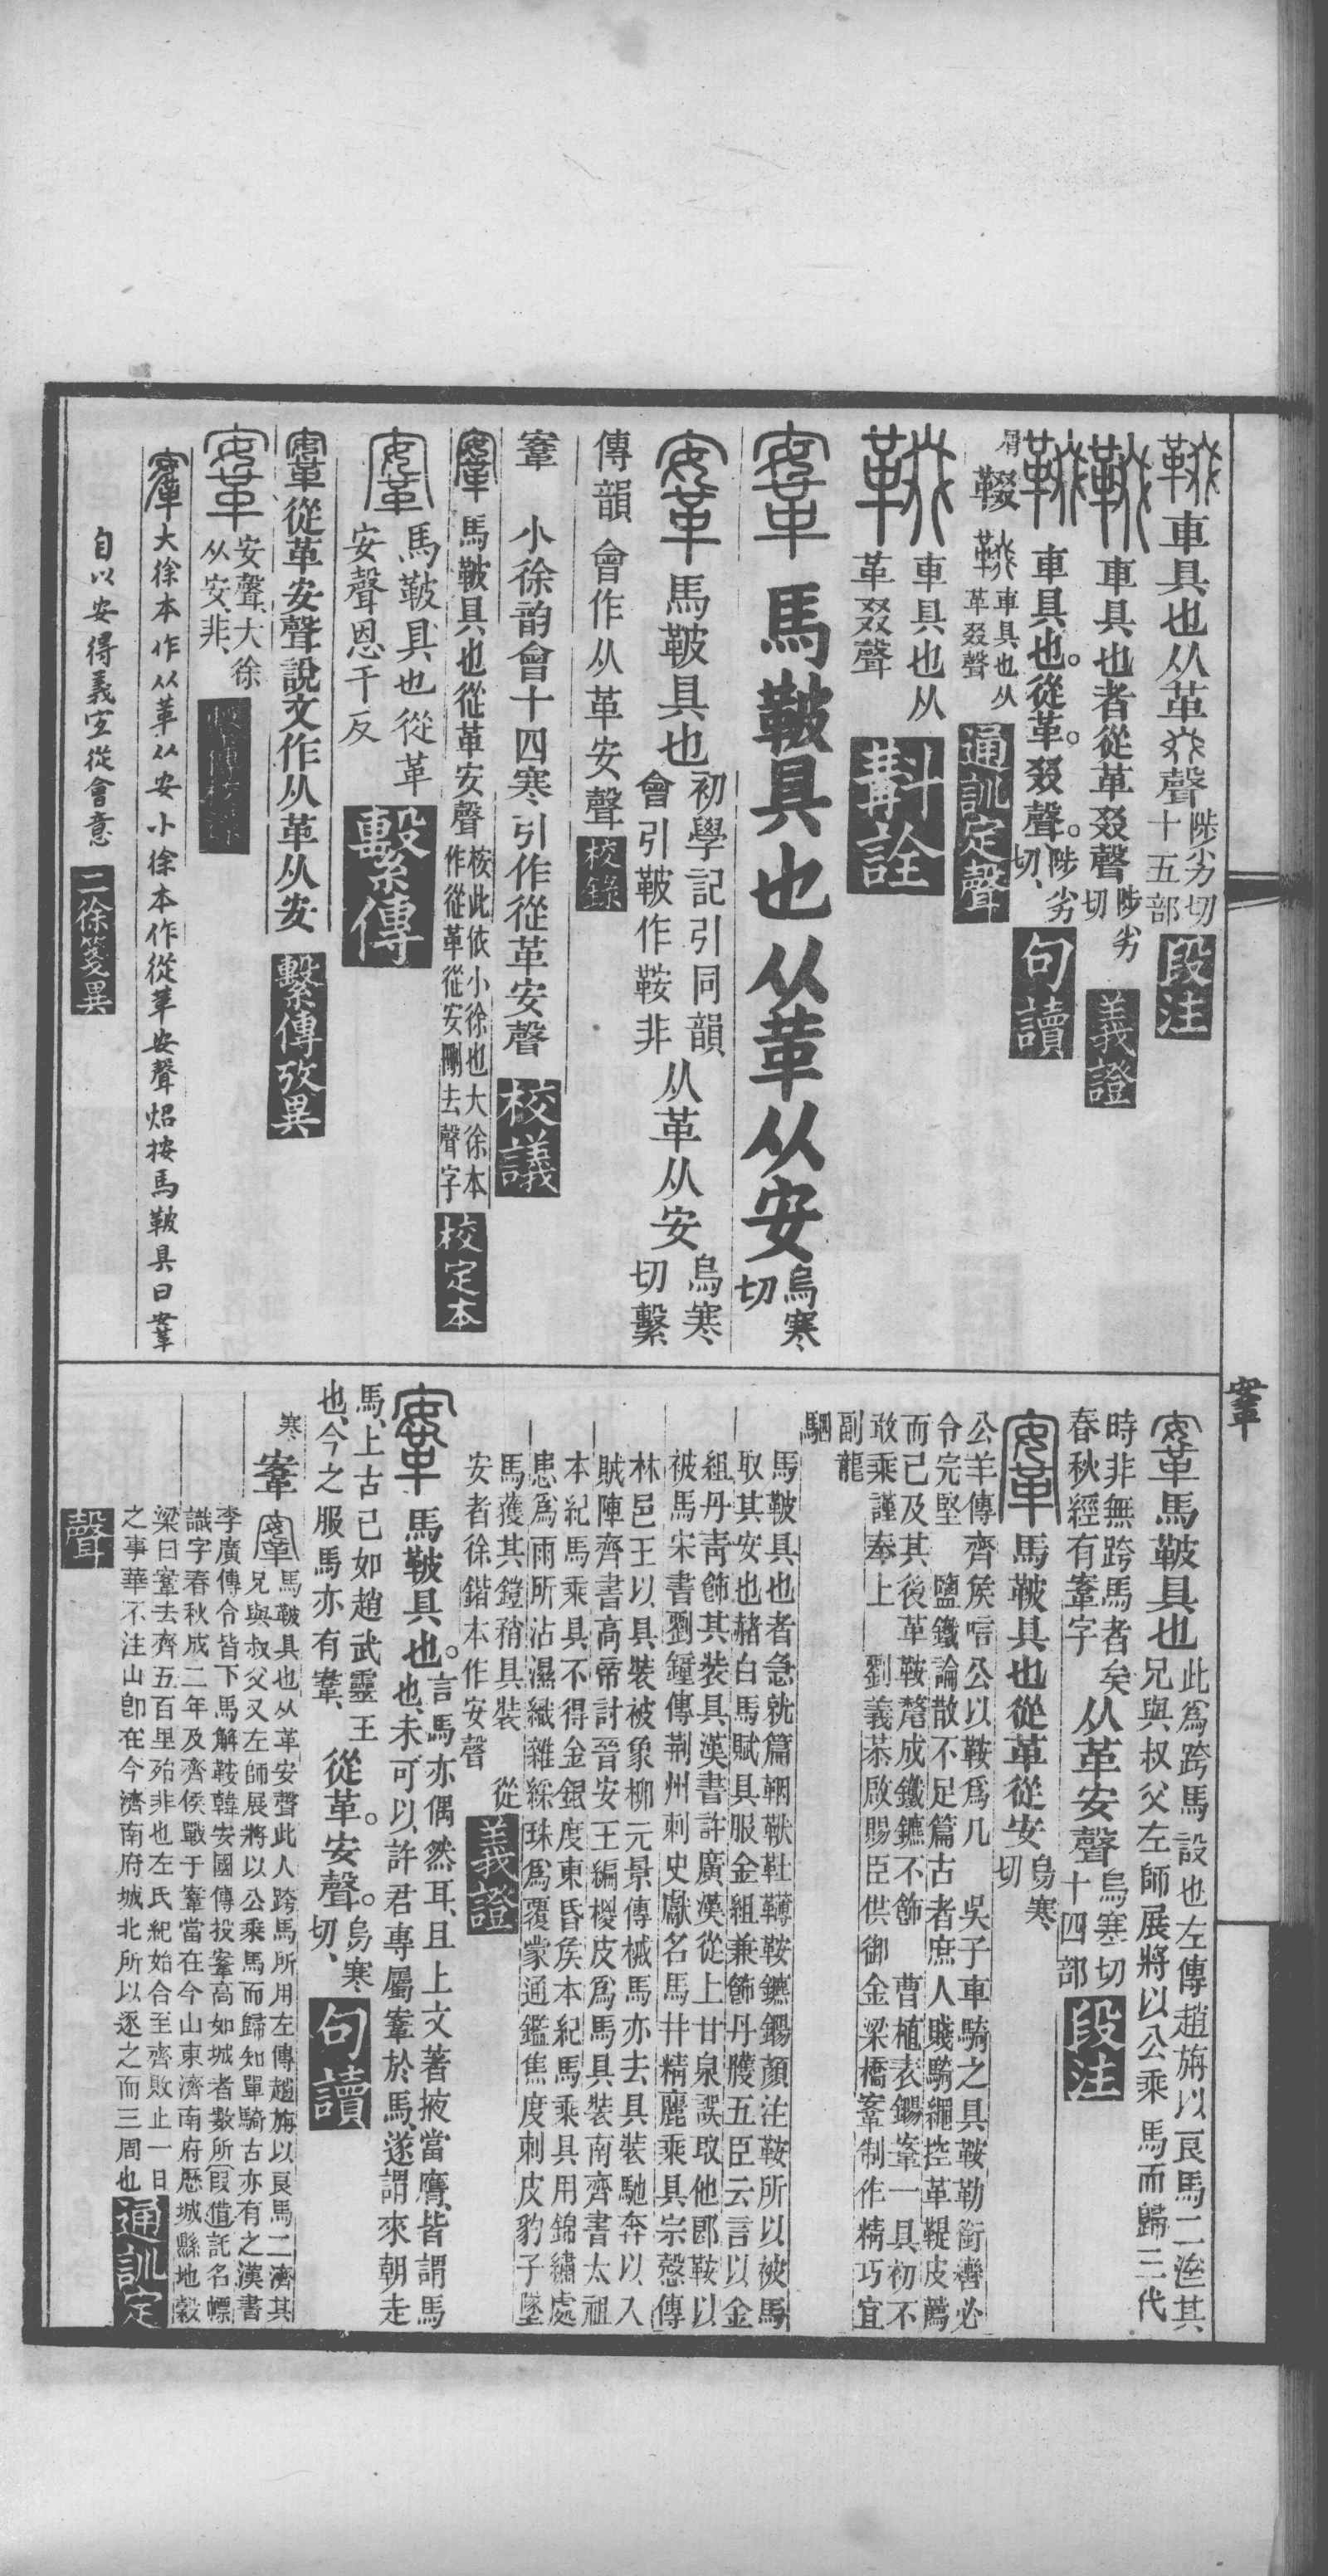 車具也从革叕聲陟劣切十五部段注
車具也者從革叕聲陟劣切義證
車具也。從革。叕聲。陟劣切、句讀
屑 䩞 車具也从革叕聲通訓定聲
車具也从革叕聲斠詮
馬鞁具也从革从安烏寒切
馬鞁具也初學記引同韻會引鞁作鞍非从革从安烏寒切繫
傳韻會作从革安聲校錄
鞌 小徐韵會十四寒引作從革安聲校議
馬鞁具也從革安聲桉此依小徐也大徐本作從革從安刪去聲字校定本
馬鞁具也從革安聲恩干反繫傳
從革安聲說文作从革从安繫傳攷異
安聲、大徐从安、非、
大徐本作从革从安小徐本作從革安聲炤按馬鞁具曰鞌
自以安得義宜從會意二徐箋異
鞌
馬鞁具也此爲跨馬設也左傳趙旃以良馬二濟其兄與叔父左師展將以公乘馬而歸三代
時非無跨馬者矣春秋經有鞌字从革安聲烏寒切十四部段注
馬鞁具也從革從安烏寒切
公羊傳齊侯唁公以鞍爲几 吳子車騎之具鞍勒銜轡必
令完堅 鹽鐵論散不足篇古者庶人賤騎繩控革鞮皮薦
而已及其後革鞍氂成鐵鑣不飾 曹植表鍚鞌一具初不
敢乘謹奉上 劉義恭啟賜臣供御金梁橋鞌制作精巧宜
副龍
駟
馬鞁具也者急就篇鞇靯䪌鞍鑣鍚顏注鞍所以被馬
取其安也赭白馬賦具服金組兼飾丹雘五臣云言以金
組丹靑飾其裝具漢書許廣漢從上甘泉誤取他郎鞍以
被馬宋書劉鍾傳荆州刺史獻名馬并精麗乘具宗慤傳
林邑王以具裝被象柳元景傳械馬亦去具裝馳奔以入
賊陣齊書高帝討晉安王編椶皮爲馬具裝南齊書太祖
本紀馬乘具不得金銀度東昏侯本紀馬乘具用錦繡處
患爲雨所沾濕織雜綵珠爲覆蒙通鑑焦度刺皮豹子墜
馬獲其鎧矟具裝 從
安者徐鍇本作安聲義證
馬鞁具也。言馬亦偶然耳、且上文著掖當膺、皆謂馬也、未可以許君專屬鞌於馬、遂謂來朝走
馬、上古已如趙武靈王也、今之服馬亦有鞌、從革。安聲。烏寒切、句讀
寒 鞌 馬鞁具也从革安聲此人跨馬所用左傳趙旃以良馬二濟其
兄與叔父又左師展將以公乘馬而歸知單騎古亦有之漢書
李廣傳令皆下馬解鞍韓安國傳投鞌高如城者數所〔叚借〕託名幖
識字春秋成二年及齊侯戰于鞌當在今山東濟南府歷城縣地穀
梁曰鞌去齊五百里殆非也左氏紀始合至齊敗止一日
之事華不注山卽在今濟南府城北所以逐之而三周也通訓定
聲